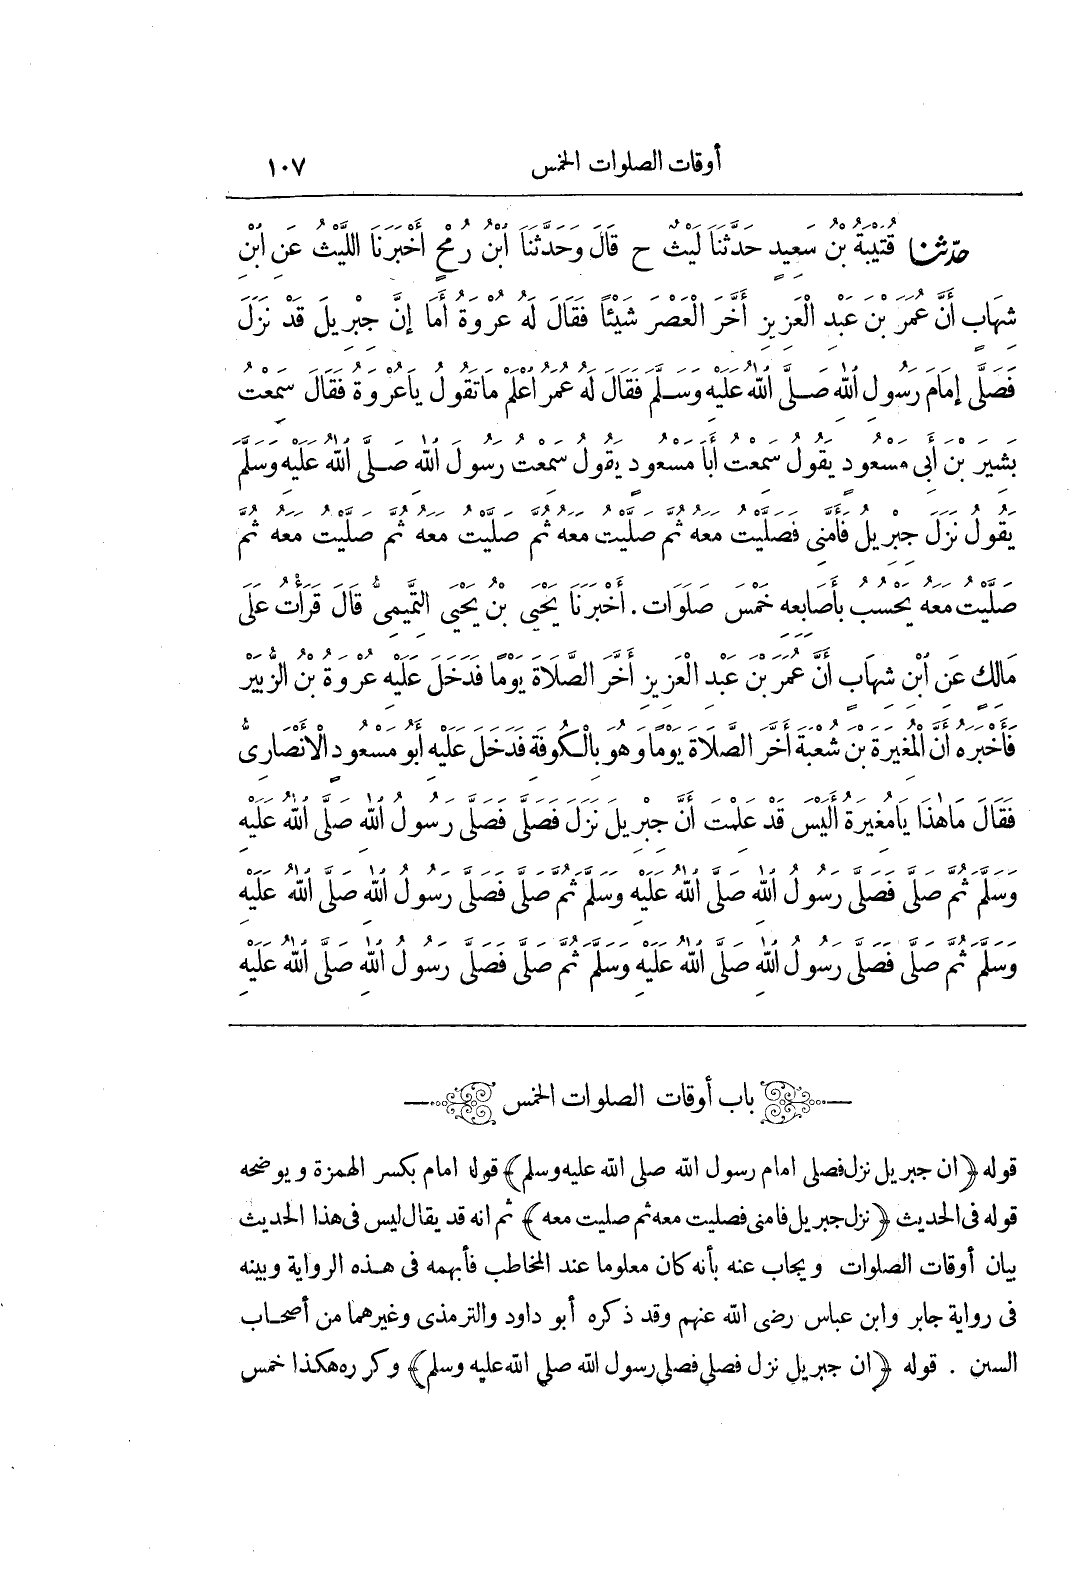 أوقات الصلوات الخمس ١٠٧
حدّثنا قُتَيْبَةُ بْنُ سَعِيدٍ حَدَّثَنَا لَيْثٌ ح قَالَ وَحَدَّثَنَا ابْنُ رُمْحٍ أَخْبَرَنَا اللَّيْثُ عَنِ ابْنِ
شِهَابٍ أَنَّ عُمَرَ بْنَ عَبْدِ الْعَزِيزِ أَخَّرَ الْعَصْرَ شَيْئًا فَقَالَ لَهُ عُرْوَةُ أَمَا إِنَّ جِبْرِيلَ قَدْ نَزَلَ
فَصَلَّى إِمَامَ رَسُولِ اللهِ صَلَّى اللهُ عَلَيْهِ وَسَلَّمَ فَقَالَ لَهُ عُمَرُ اعْلَمْ مَا تَقُولُ يَا عُرْوَةُ فَقَالَ سَمِعْتُ
بَشِيرَ بْنَ أَبِي مَسْعُودٍ يَقُولُ سَمِعْتُ أَبَا مَسْعُودٍ يَقُولُ سَمِعْتُ رَسُولَ اللهِ صَلَّى اللهُ عَلَيْهِ وَسَلَّمَ
يَقُولُ نَزَلَ جِبْرِيلُ فَأَمَّنِي فَصَلَّيْتُ مَعَهُ ثُمَّ صَلَّيْتُ مَعَهُ ثُمَّ صَلَّيْتُ مَعَهُ ثُمَّ صَلَّيْتُ مَعَهُ ثُمَّ
صَلَّيْتُ مَعَهُ يَحْسُبُ بِأَصَابِعِهِ خَمْسَ صَلَوَاتٍ . أَخْبَرَنَا يَحْيَى بْنُ يَحْيَى التَّمِيمِىُّ قَالَ قَرَأْتُ عَلَى
مَالِكٍ عَنِ ابْنِ شِهَابٍ أَنَّ عُمَرَ بْنَ عَبْدِ الْعَزِيزِ أَخَّرَ الصَّلَاةَ يَوْمًا فَدَخَلَ عَلَيْهِ عُرْوَةُ بْنُ الزُّبَيْرِ
فَأَخْبَرَهُ أَنَّ الْمُغِيرَةَ بْنَ شُعْبَةَ أَخَّرَ الصَّلَاةَ يَوْمًا وَهُوَ بِالْكُوفَةِ فَدَخَلَ عَلَيْهِ أَبُو مَسْعُودٍ الْأَنْصَارِىُّ
فَقَالَ مَا هٰذَا يَا مُغِيرَةُ أَلَيْسَ قَدْ عَلِمْتَ أَنَّ جِبْرِيلَ نَزَلَ فَصَلَّى فَصَلَّى رَسُولُ اللهِ صَلَّى اللهُ عَلَيْهِ
وَسَلَّمَ ثُمَّ صَلَّى فَصَلَّى رَسُولُ اللهِ صَلَّى اللهُ عَلَيْهِ وَسَلَّمَ ثُمَّ صَلَّى فَصَلَّى رَسُولُ اللهِ صَلَّى اللهُ عَلَيْهِ
وَسَلَّمَ ثُمَّ صَلَّى فَصَلَّى رَسُولُ اللهِ صَلَّى اللهُ عَلَيْهِ وَسَلَّمَ ثُمَّ صَلَّى فَصَلَّى رَسُولُ اللهِ صَلَّى اللهُ عَلَيْهِ
باب أوقات الصلوات الخمس
قوله ﴿ان جبريل نزل فصلى امام رسول الله صلى الله عليه وسلم﴾ قوله امام بكسر الهمزة ويوضحه
قوله فى الحديث ﴿نزل جبريل فامنى فصليت معه ثم صليت معه﴾ ثم انه قد يقال ليس فى هذا الحديث
بيان أوقات الصلوات ويجاب عنه بأنه كان معلوما عند المخاطب فأبهمه فى هذه الرواية وبينه
فى رواية جابر وابن عباس رضى الله عنهم وقد ذكره أبو داود والترمذى وغيرهما من أصحاب
السنن . قوله ﴿ان جبريل نزل فصلى فصلى رسول الله صلى الله عليه وسلم﴾ وكرره هكذا خمس